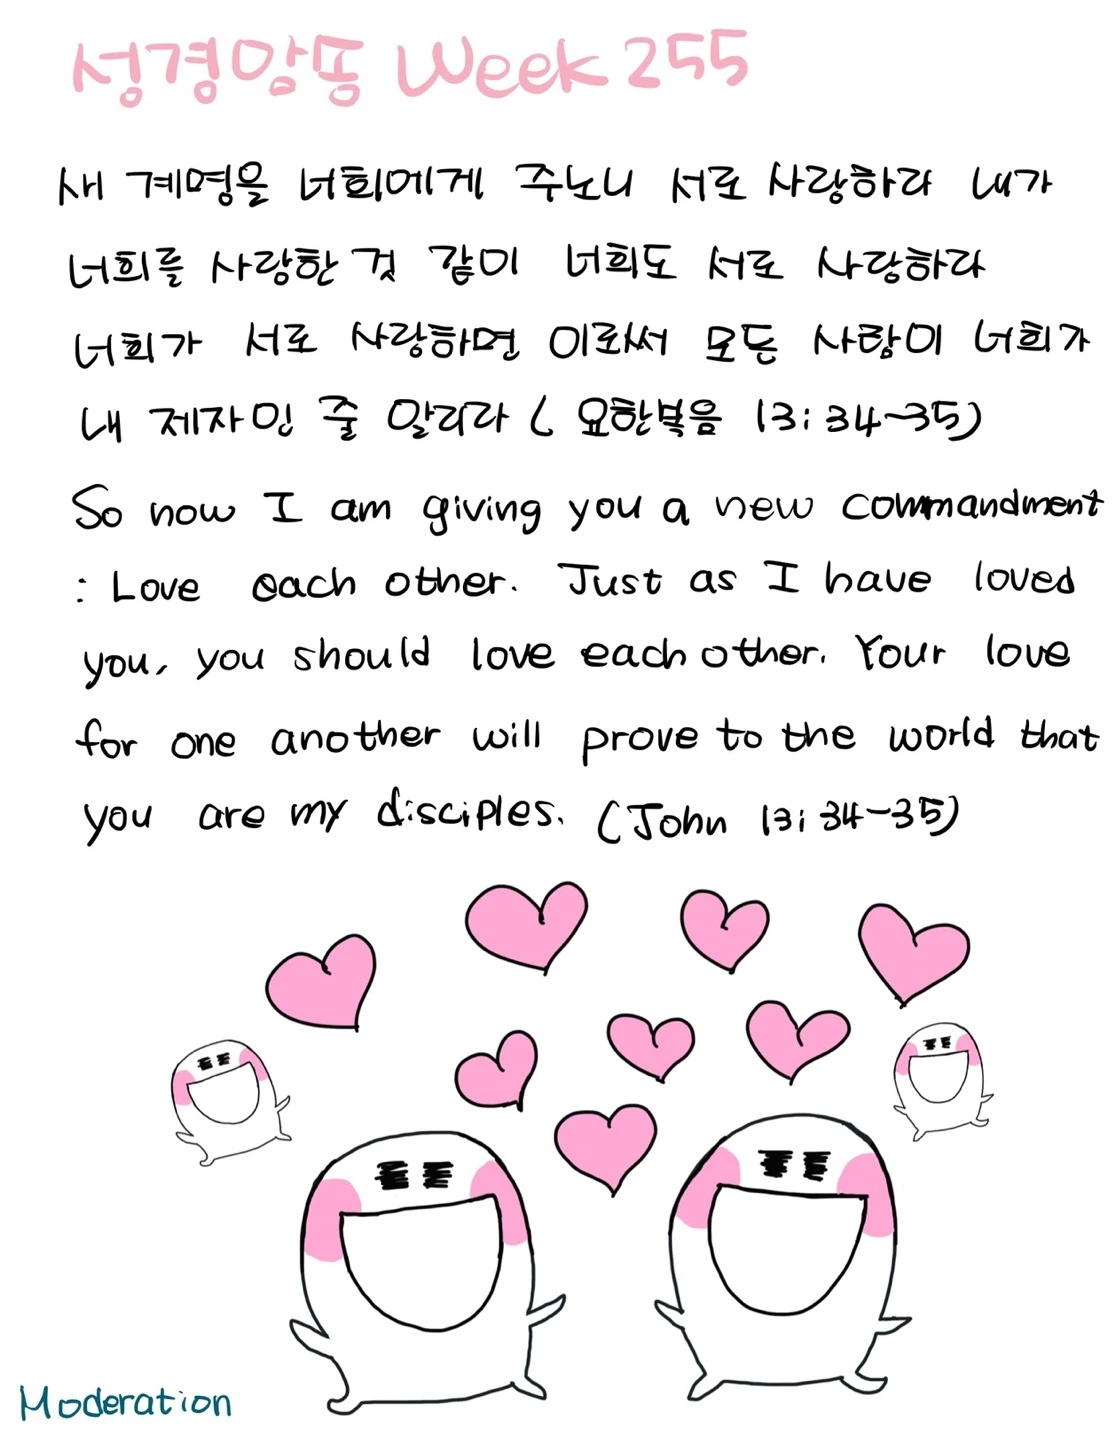 성경암송 Week 255
새 계명을 너희에게 주노니 서로 사랑하라 내가
너희를 사랑한 것 같이 너희도 서로 사랑하라
너희가 서로 사랑하면 이로써 모든 사람이 너희가
내 제자인 줄 알리라 ( 요한복음 13:34~35)
So now I am giving you a new commandment
: Love each other. Just as I have loved
you, you should love each other. Your love
for one another will prove to the world that
you are my disciples. (John 13:34-35)
Moderation